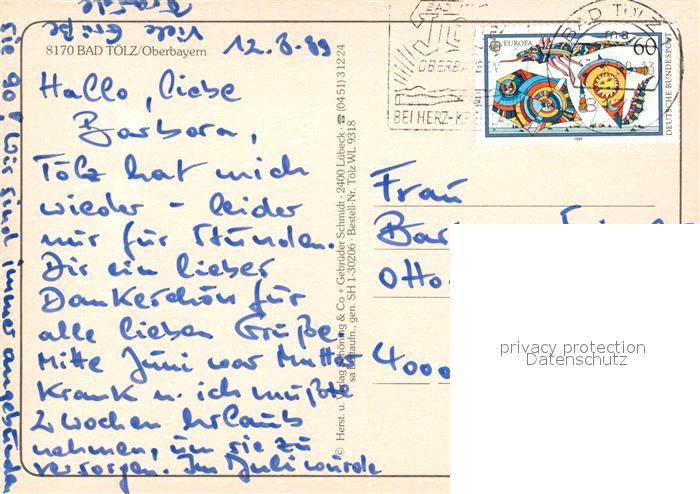 8170 BAD TÖLZ/Oberbayern
12.8.89
Hallo, liebe
Barbara,
Tölz hat mich
wieder - leider
nur für Stunden.
Dir ein lieber
Dankeschön für
alle lieben Grüße.
Mitte Juni war Mutter
krank u. ich mußte
2 Wochen Urlaub
nehmen, um sie zu
versorgen. Im Juli würde
sie 90! Wir sind immer angebunden
Viele Grüße
© Herst. u. Verlag Schöning & Co + Gebrüder Schmidt · 2400 Lübeck · ☎ (04 51) 3 12 24
gen. SH 1-30206 · Bestell-Nr. Tölz WL 9318
BAD TÖLZ
OBERBAYERN
BEI HERZ-
EUROPA
60
DEUTSCHE BUNDESPOST
1989
Frau
Bar
Otto
4000
privacy protection
Datenschutz